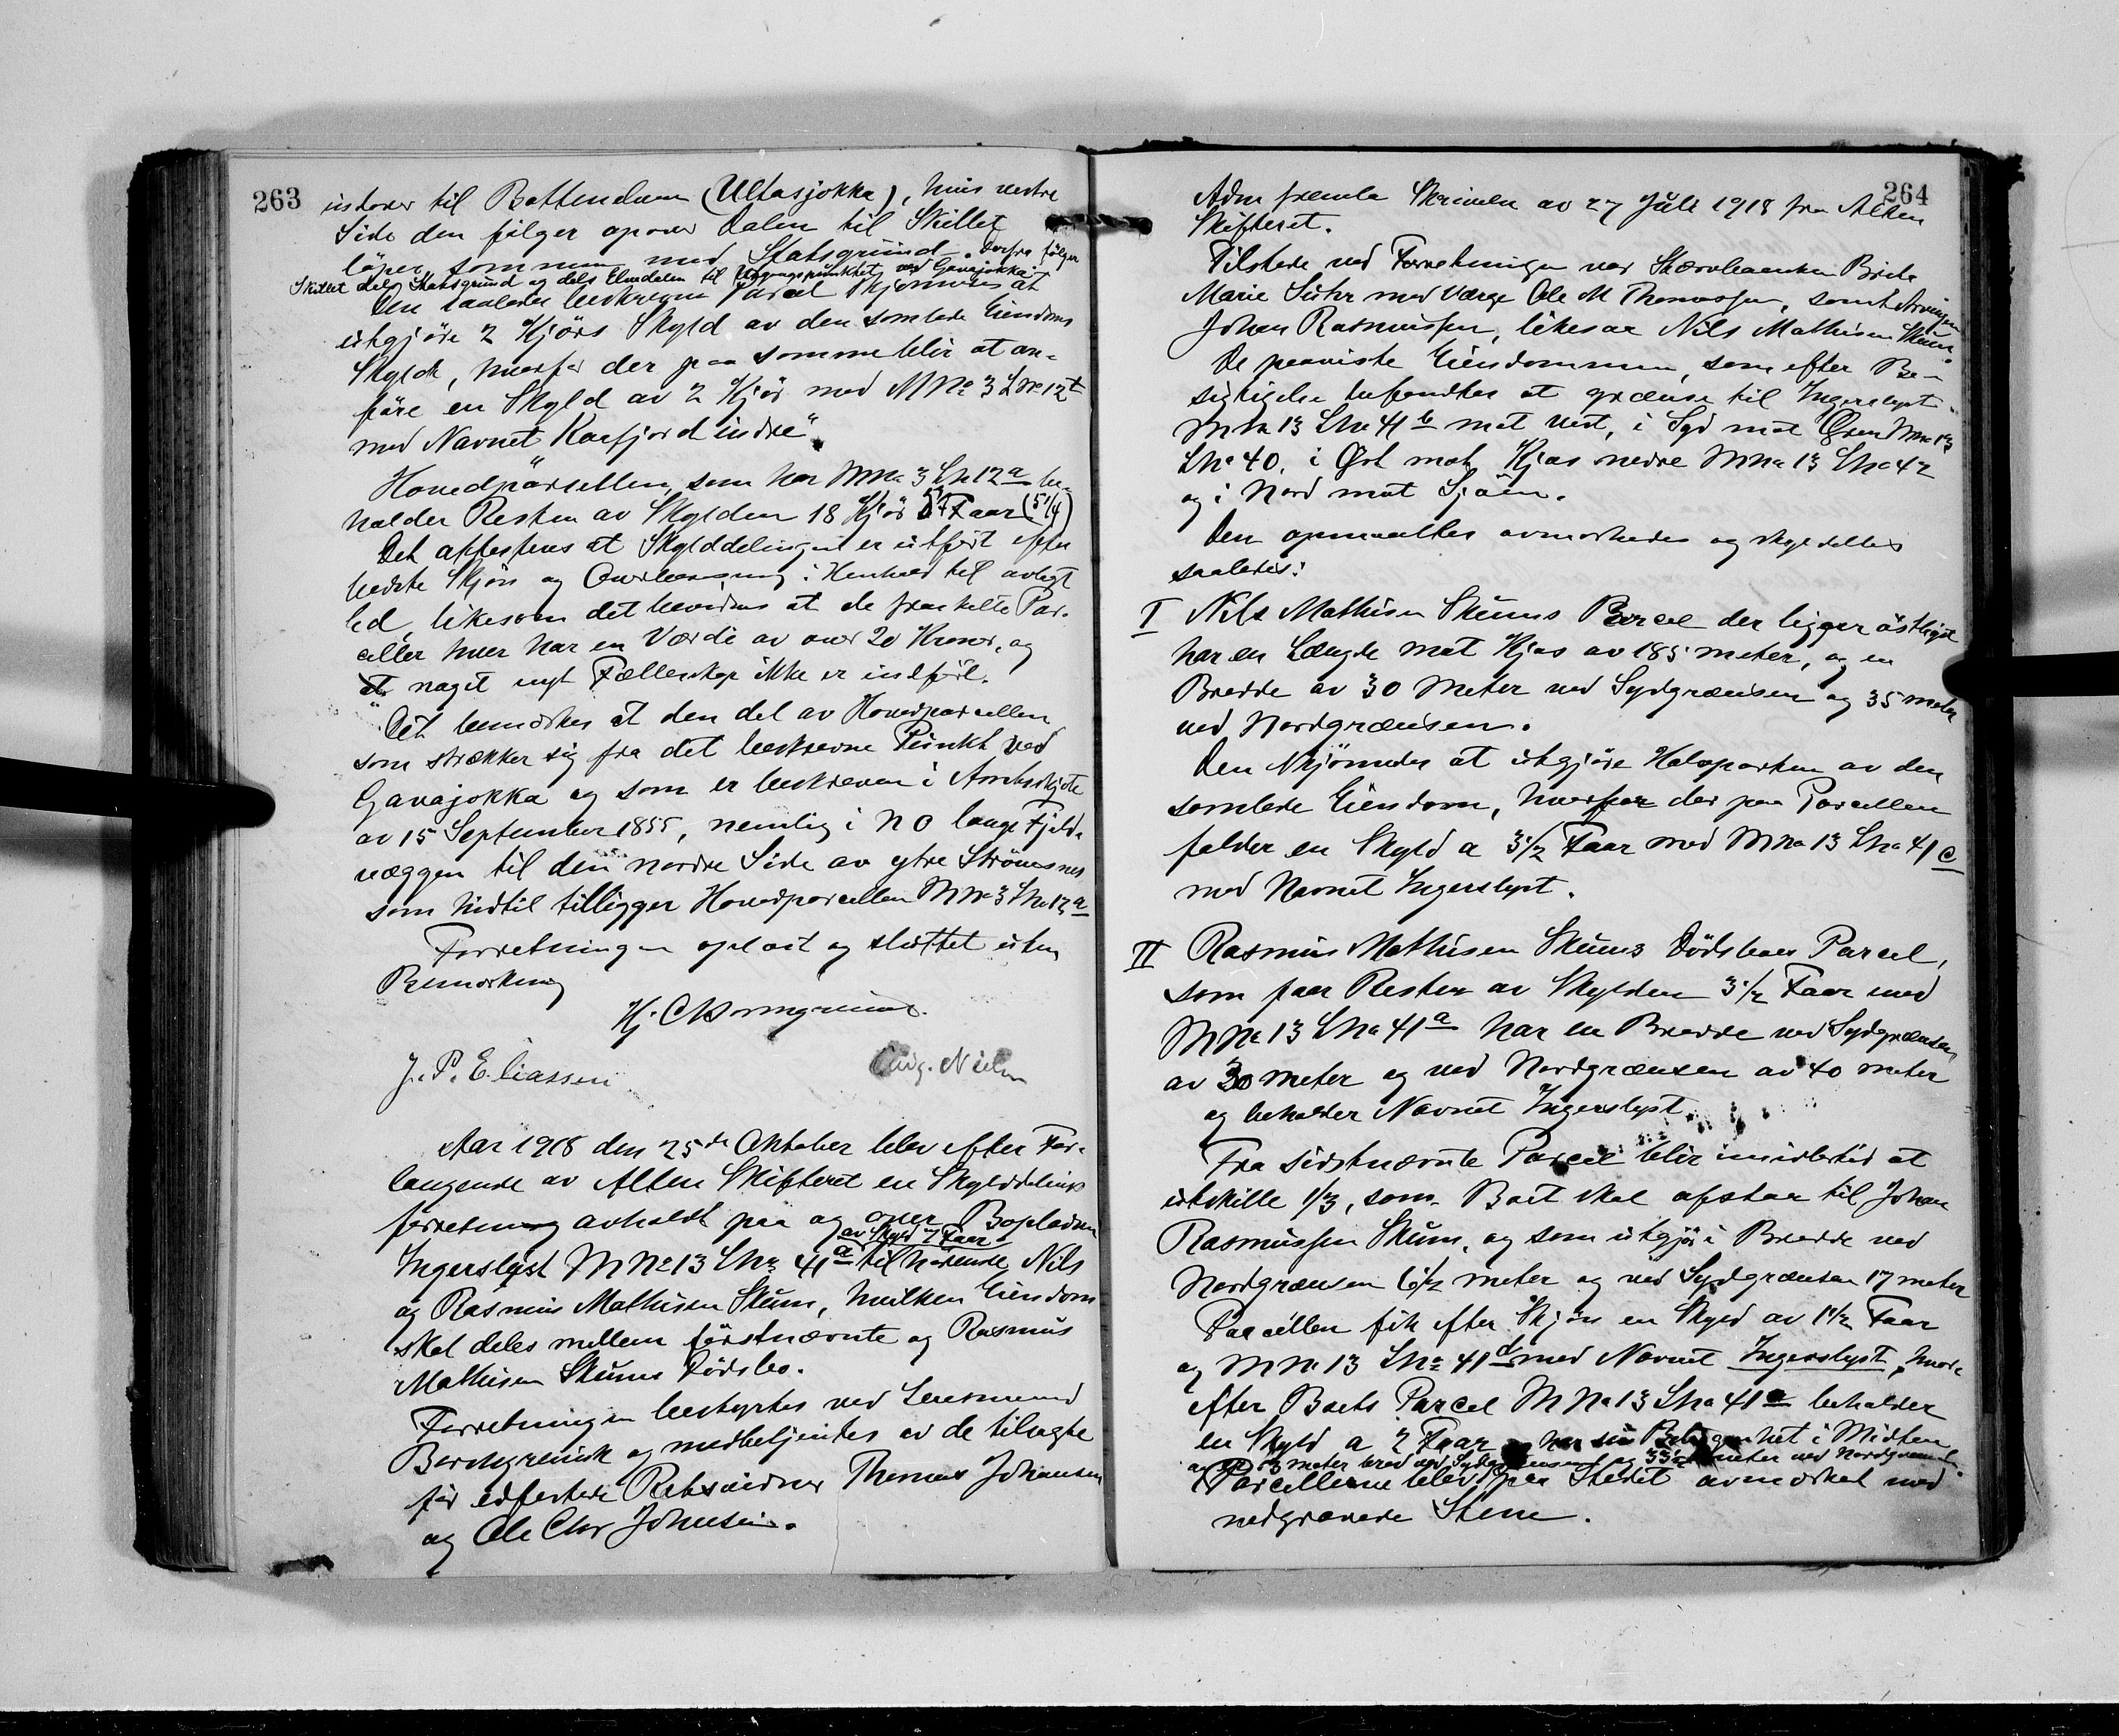 263
indover til Bottendnen (Ultasjokka), hvis vestre
Side den følger opover Dalen til Skillet
löper sammen med Statsgrund. Derfra følger
Skillet dels Statsgrund og dels Elvedalen til Utgangspunktet ved Gavajokka.
Den saaledes beskrevne Parcel skjönnes at
utgjöre 2 Kjörs Skyld av den samlede Eiendoms
Skyld, hvorfor der paa samme blir at an-
före en Skyld av 2 Kjör med M No 3 L No 12 t
med Navnet Kaafjord indre".
Hovedparsellen, som har MNo 3 LNo 12 a be-
holder Resten av Skylden 18 Kjör 5¼ Faar (5¼)
Det attesteres at Skylddelingen er utfört efter
bedste Skjön og Overbevisning i Henhold til avlagt
Ed, likesom det bevidnes at de fraskilte Par-
celler hver har en Værdi av over 20 Kroner, og
at noget nyt Fællesskap ikke er indfört.
Det bemerkes at den del av Hovedparcellen
som strækker sig fra det beskrevne Punkt ved
Gavajokka og som er beskreven i Amtsskjöte
av 15 September 1855, nemlig i NO langs Fjeld-
væggen til den nordre Side av ytre Strömsnes
som hidtil tilligger Hovedparcellen MNo 3 LNo 12 a
Forretningen oplæst og sluttet uten
Bemerkning
Hj. C Borchgrevink.
J. P. Eliassen
Aug. Nielsen
Aar 1918 den 25de Oktober blev efter For-
langende av Alten Skifteret en Skylddelings
forretning avholdt paa og over Bopladsen
av Skyld 7 Faar
Ingerslyst MNo 13 LNo 41 a tilhörende Nils
og Rasmus Mathisen Skum, hvilken Eiendom
skal deles mellem förstnævnte og Rasmus
Mathisen Skums Dödsbo.
Forretningen bestyrtes ved Lensmand
Borchgrevink og medbetjentes av de tilsagte
för edfestede Retsvidner Thomas Johansen
og Ole Chr Johnsen.
264
Adm fremla Skrivelse av 27 Juli 1918 fra Alten
Skifteret.
Tilstede ved Forretningen var Skarvbaenken Brite
Marie Suhr med Værge Ole M Thomassen, samt Arvingen
Johan Rasmussen, likesaa Nils Mathisen Skum.
De paaviste Eiendommen, som efter Be-
sigtigelse befandtes at grænse til Ingerslyst
MNo 13 LNo 41 b mot Vest, i Syd mot Øren MNo 13
LNo 40, i Øst mot Kjos nedre MNo 13 LNo 42
og i Nord mot Sjöen.
Den opmaaltes avmerkedes og skylddeltes
saaledes:
I Nils Mathisen Skums Parcel der ligger östligst
har en Længde mot Kjos av 185 meter, og en
Bredde av 30 Meter ved Sydgrænsen og 35 meter
ved Nordgrænsen.
Den skjönnedes at utgjöre Halvparten av den
samlede Eiendom, hvorfor der paa Parcellen
falder en Skyld a 3½ Faar med MNo 13 LNo 41 c
med Navnet Ingerslyst.
II Rasmus Mathisen Skums Dödsboes Parcel,
som faar Resten av Skylden 3½ Faar med
MNo 13 LNo 41 a har en Bredde ved Sydgrænsen
av 30 meter og ved Nordgrænsen av 40 meter
og beholder Navnet Ingerslyst
Fra sidstnævnte Parcel blir imidlertid at
utskille 1/3, som Boet skal afstaa til Johan
Rasmussen Skum, og som utgjör i Bredde ved
Nordgrænsen 6½ meter og ved Sydgrænsen 17 meter
Parcellen fik efter Skjön en Skyld av 1½ Faar
og MNo 13 LNo 41 d med Navnet Ingerslyst, hvor-
efter Boets Parcel MNo 13 LNo 41 a beholder
en Skyld a 2 Faar har sin Beliggenhet i Midten
og er 13 meter bred ved Sydgrænsen og 33½ meter ved Nordgrænsen.
Parcellerne blev paa Stedet avmerket med
nedgravede Stene.